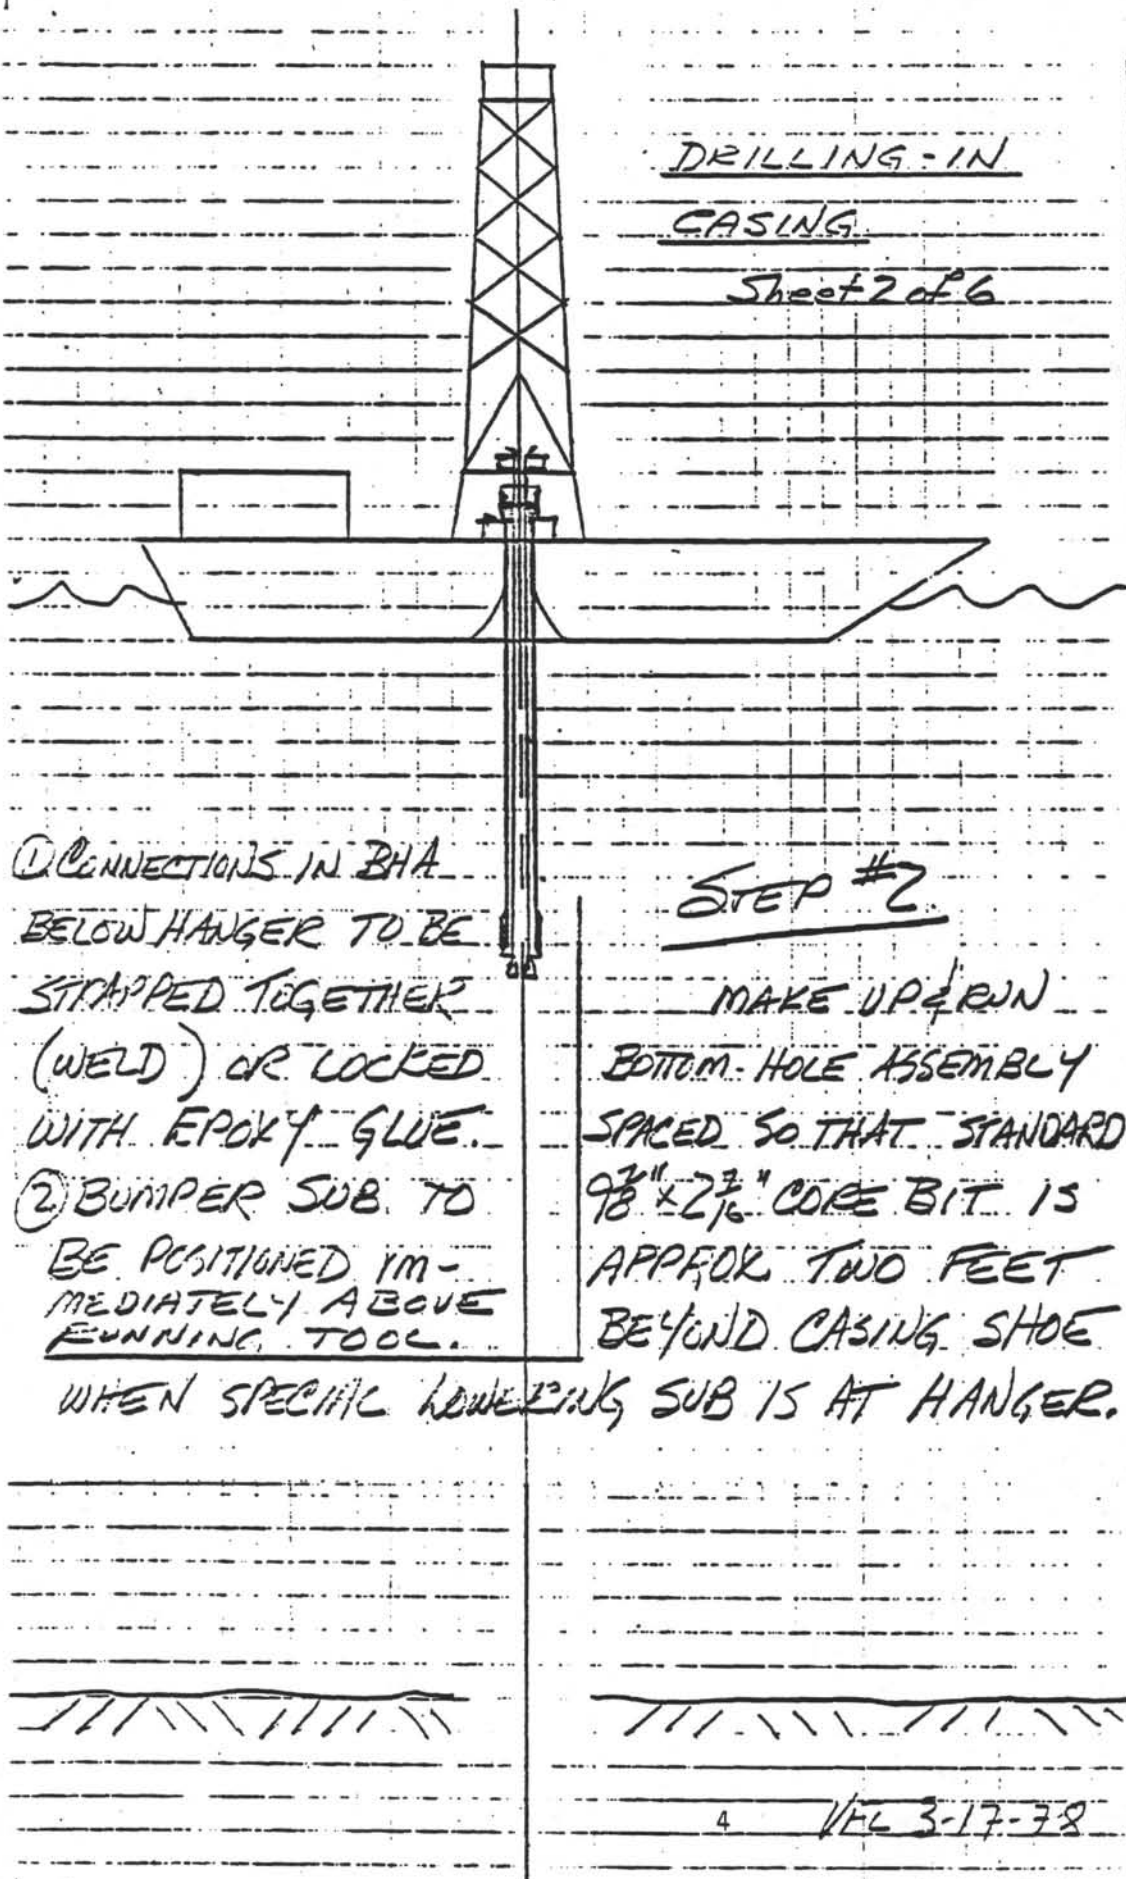 DRILLING-IN
CASING
Sheet 2 of 6
① CONNECTIONS IN BHA
BELOW HANGER TO BE
STRAPPED TOGETHER
(WELD) OR LOCKED
WITH EPOXY GLUE.
② BUMPER SUB TO
BE POSITIONED IM-
MEDIATELY ABOVE
RUNNING TOOL.
STEP #2
MAKE UP & RUN
BOTTOM-HOLE ASSEMBLY
SPACED SO THAT STANDARD
9 7/8" x 2 7/16" CORE BIT IS
APPROX TWO FEET
BEYOND CASING SHOE
WHEN SPECIAL LOWERING SUB IS AT HANGER.
4
3-17-78